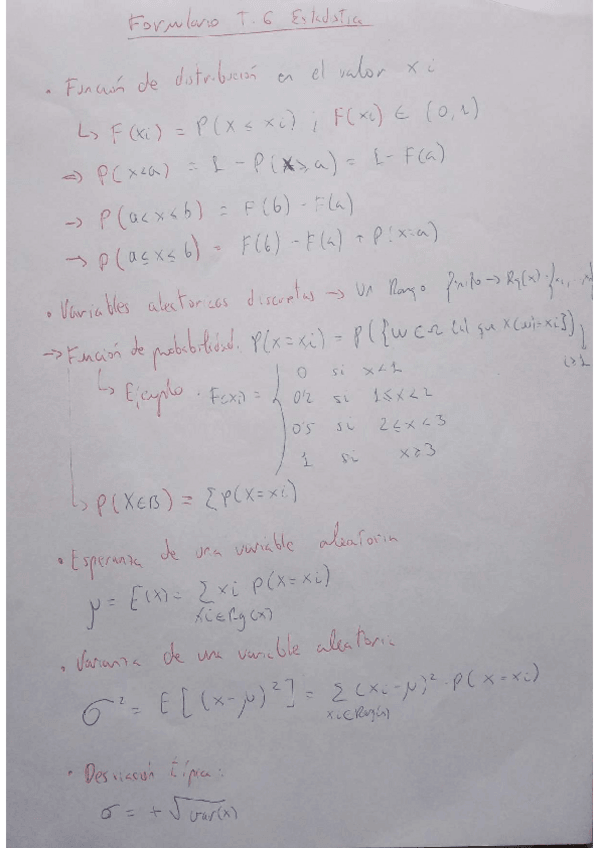 Formulario T.6 Estadística
• Función de distribución en el valor xi
↳ F(xi) = P(X ≤ xi) ; F(xi) ∈ (0,1)
⇒ P(x<a) = 1 - P(X≥a) = 1 - F(a)
→ P(a<x≤b) = F(b) - F(a)
→ P(a≤x≤b) = F(b) - F(a) + P(x=a)
• Variables aleatorias discretas → Un Rango finito → Rg(x)
→ Función de probabilidad. P(X=xi) = P({w ∈ Ω tal que X(w)=xi})
i≥1
↳ Ejemplo. F(xi) = { 0 si x<1
0'2 si 1≤x<2
0'5 si 2≤x<3
1 si x≥3
↳ P(X∈B) = ∑P(X=xi)
• Esperanza de una variable aleatoria
μ = E(x) = ∑ xi P(X=xi)
xi∈Rg(x)
• Varianza de una variable aleatoria
σ² = E[(x-μ)²] = ∑(xi-μ)²·P(x=xi)
xi∈Rg(x)
• Desviación típica:
σ = +√var(x)